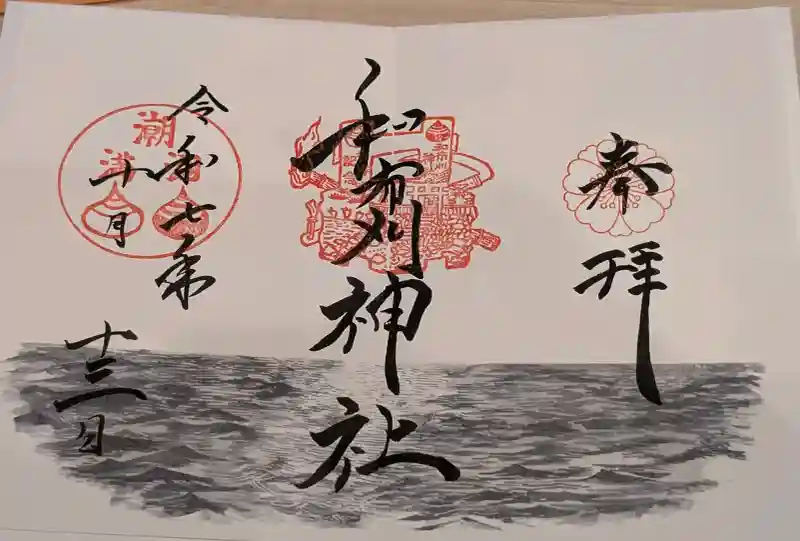 奉拝
和布刈神社
令和七年
十月
十三日
潮
満